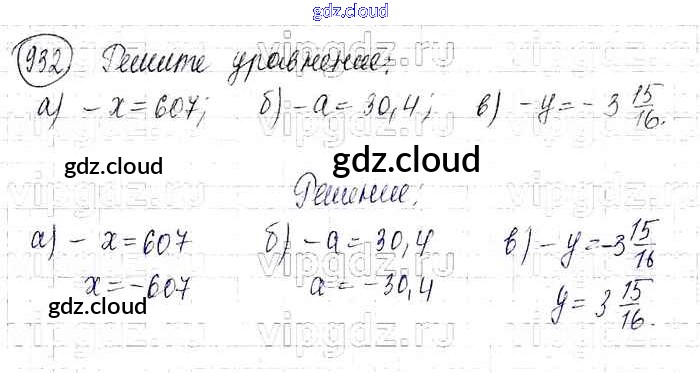 gdz.cloud
932 Решите уравнение:
а) - x = 607; б) - a = 30,4; в) - y = - 3 15/16.
gdz.cloud gdz.cloud
Решение:
а) - x = 607 б) - a = 30,4 в) - y = -3 15/16
x = -607 a = -30,4 y = 3 15/16.
gdz.cloud gdz.cloud gdz.cloud
vipgdz.ru